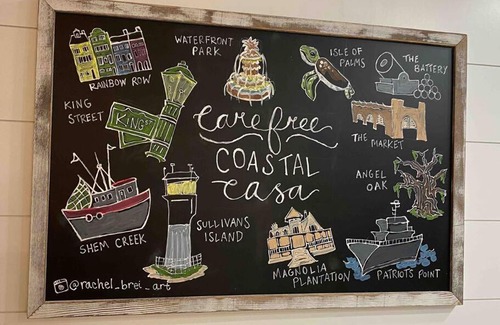 RAINBOW ROW
WATERFRONT
PARK
ISLE OF
PALMS
THE BATTERY
KING
STREET
KING ST
carefree
COASTAL
casa
THE MARKET
ANGEL
OAK
SHEM CREEK
SULLIVANS
ISLAND
MAGNOLIA
PLANTATION
PATRIOTS POINT
@rachel_brei_art